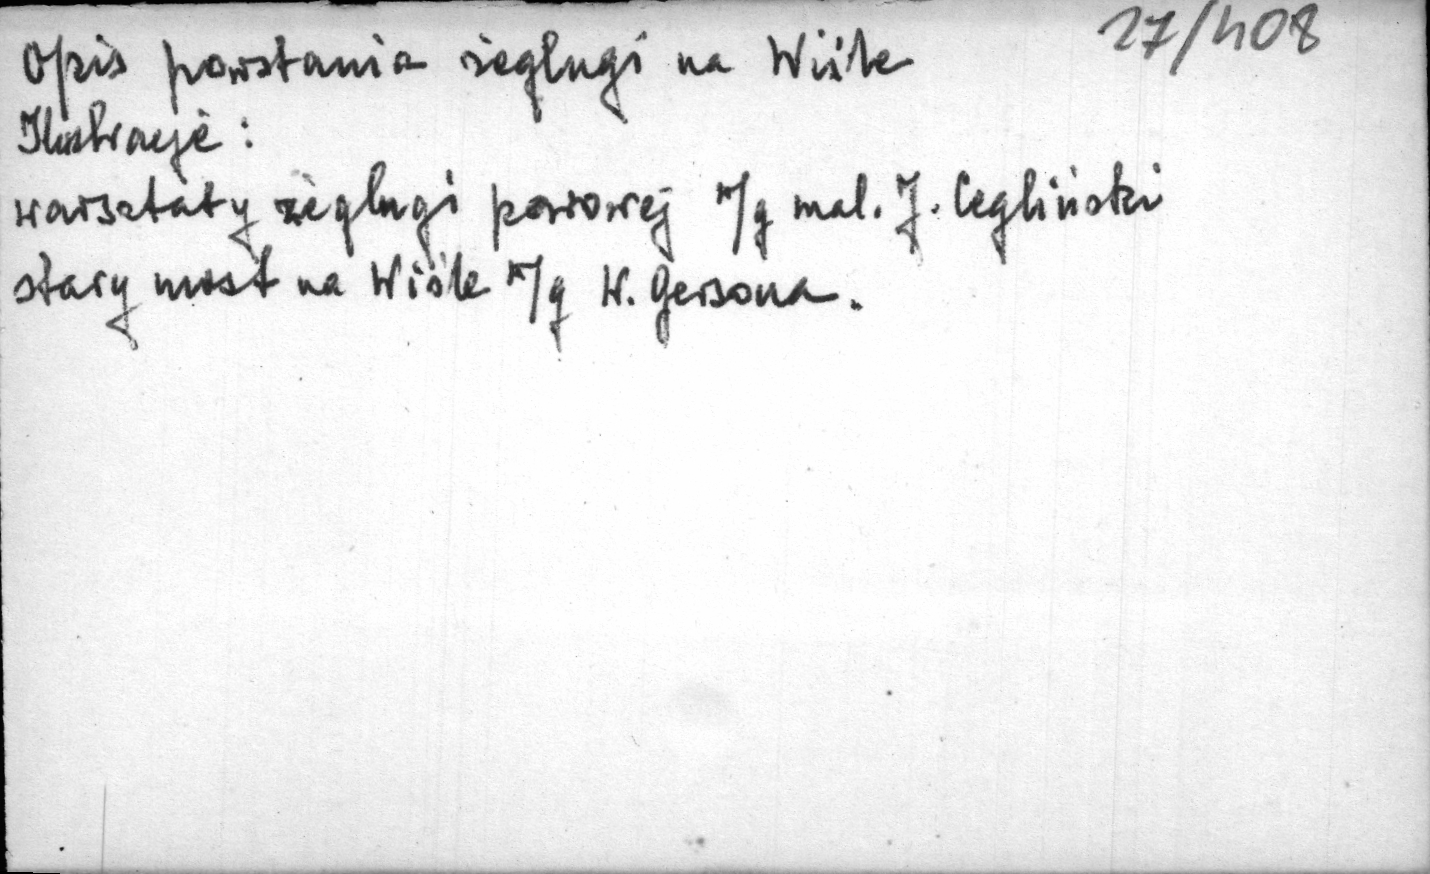 27/408
Opis powstania żeglugi na Wiśle
Ilustracje:
warsztaty żeglugi parowej w/g mal. J. Cegliński
stary most na Wiśle w/g W. Gersona.